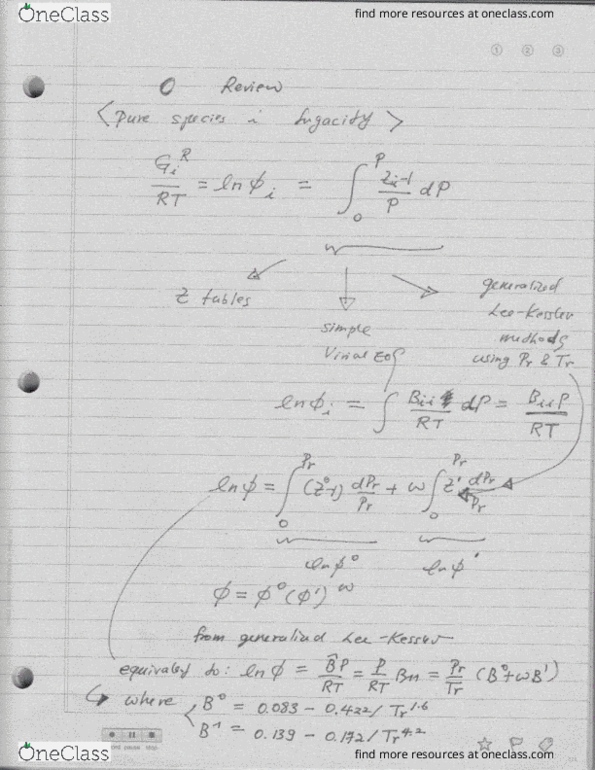 OneClass
find more resources at oneclass.com
① ② ③
Review
<pure species i fugacity>
G_i^R/RT = ln ϕ_i = ∫_0^P (Z_i-1)/P dP
Z tables
simple
Virial EOS
generalized
Lee-Kessler
methods
using Pr & Tr
ln ϕ_i = ∫ B_ii/RT dP = B_ii P/RT
ln ϕ = ∫_0^Pr (Z°-1) dPr/Pr + ω ∫_0^Pr Z' dPr/Pr
ln ϕ° ln ϕ'
ϕ = ϕ°(ϕ')^ω
from generalized Lee-Kessler
equivalent to: ln ϕ = B̂P/RT = P/RT B_11 = Pr/Tr (B°+ωB')
where B° = 0.083 - 0.422/Tr^1.6
B^1 = 0.139 - 0.172/Tr^4.2
OneClass
find more resources at oneclass.com